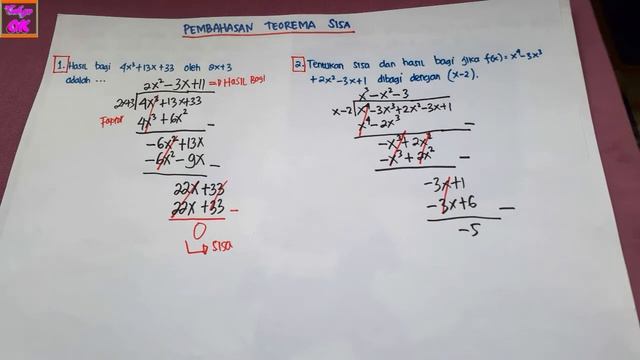 PEMBAHASAN TEOREMA SISA
1. Hasil bagi 4x³+13x+33 oleh 2x+3
adalah ...
2x² - 3x + 11 = Hasil Bagi
2x+3 4x³+13x+33
Faktor
4x³ + 6x²
-6x² + 13x
-6x² - 9x
22x + 33
22x + 33
0
Sisa
2. Tentukan sisa dan hasil bagi jika f(x) = x⁴-3x³
+2x²-3x+1 dibagi dengan (x-2).
x³ - x² - 3
x-2 x⁴-3x³+2x²-3x+1
x⁴-2x³
-x³ + 2x²
-x³ + 2x²
-3x+1
-3x+6
-5